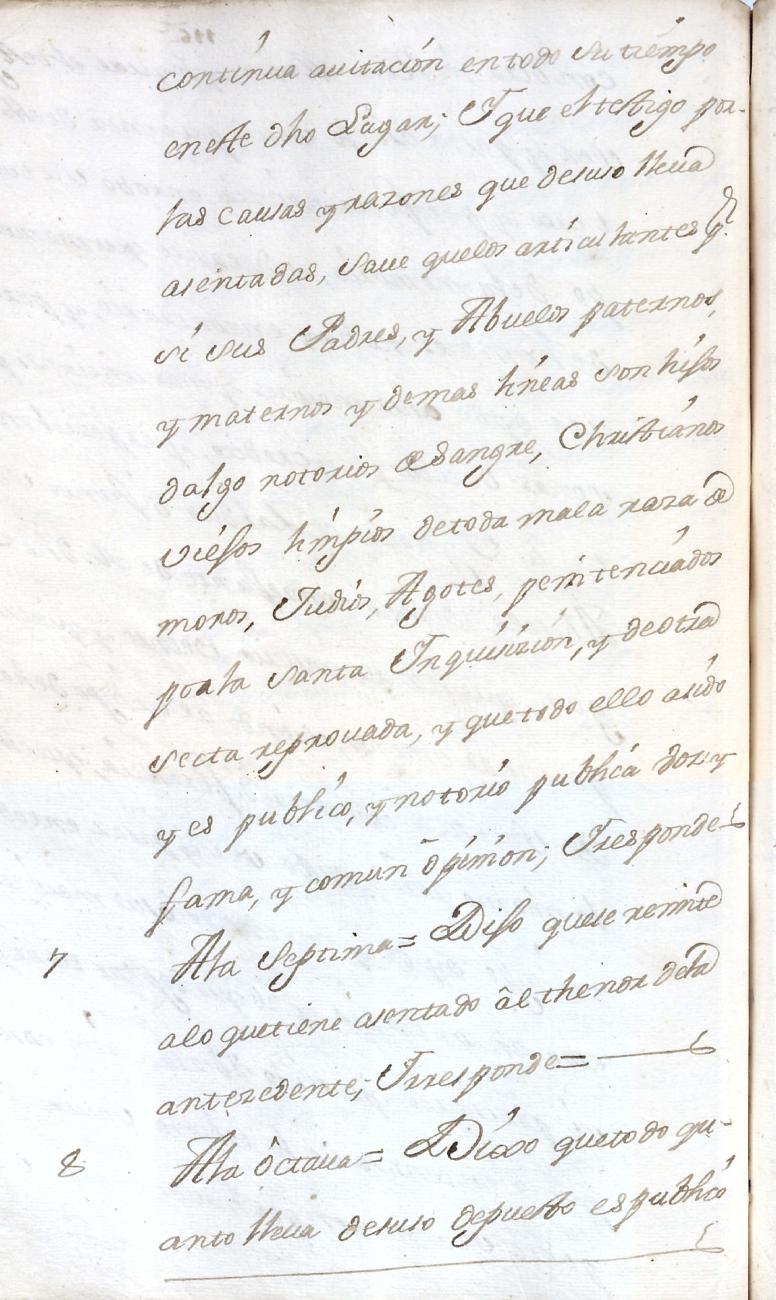 continua auitación en todo su tiempo
en este dho Lugar; Y que el testigo por
las causas y razones que desuso lleua
asentadas, saue que los articulantes p.r
si sus Padres, y Abuelos paternos,
y maternos y demas lineas son hisos
dalgo notorios de Sangre, Christianos
viejos limpios de toda mala raza de
moros, Judios, Agotes, penitenciados
por la Santa Inquisizión, y de otra
secta reprouada, y que todo ello asido
y es publico, y notorio publica voz y
fama, y comun opinion; Y responde
7 A la septima = Diso que se remite
a lo que tiene asentado âl thenor dela
antezedente; Y responde =
8 A la ôctaua = Dixo que todo qu-
anto lleua desuso depuesto es publico